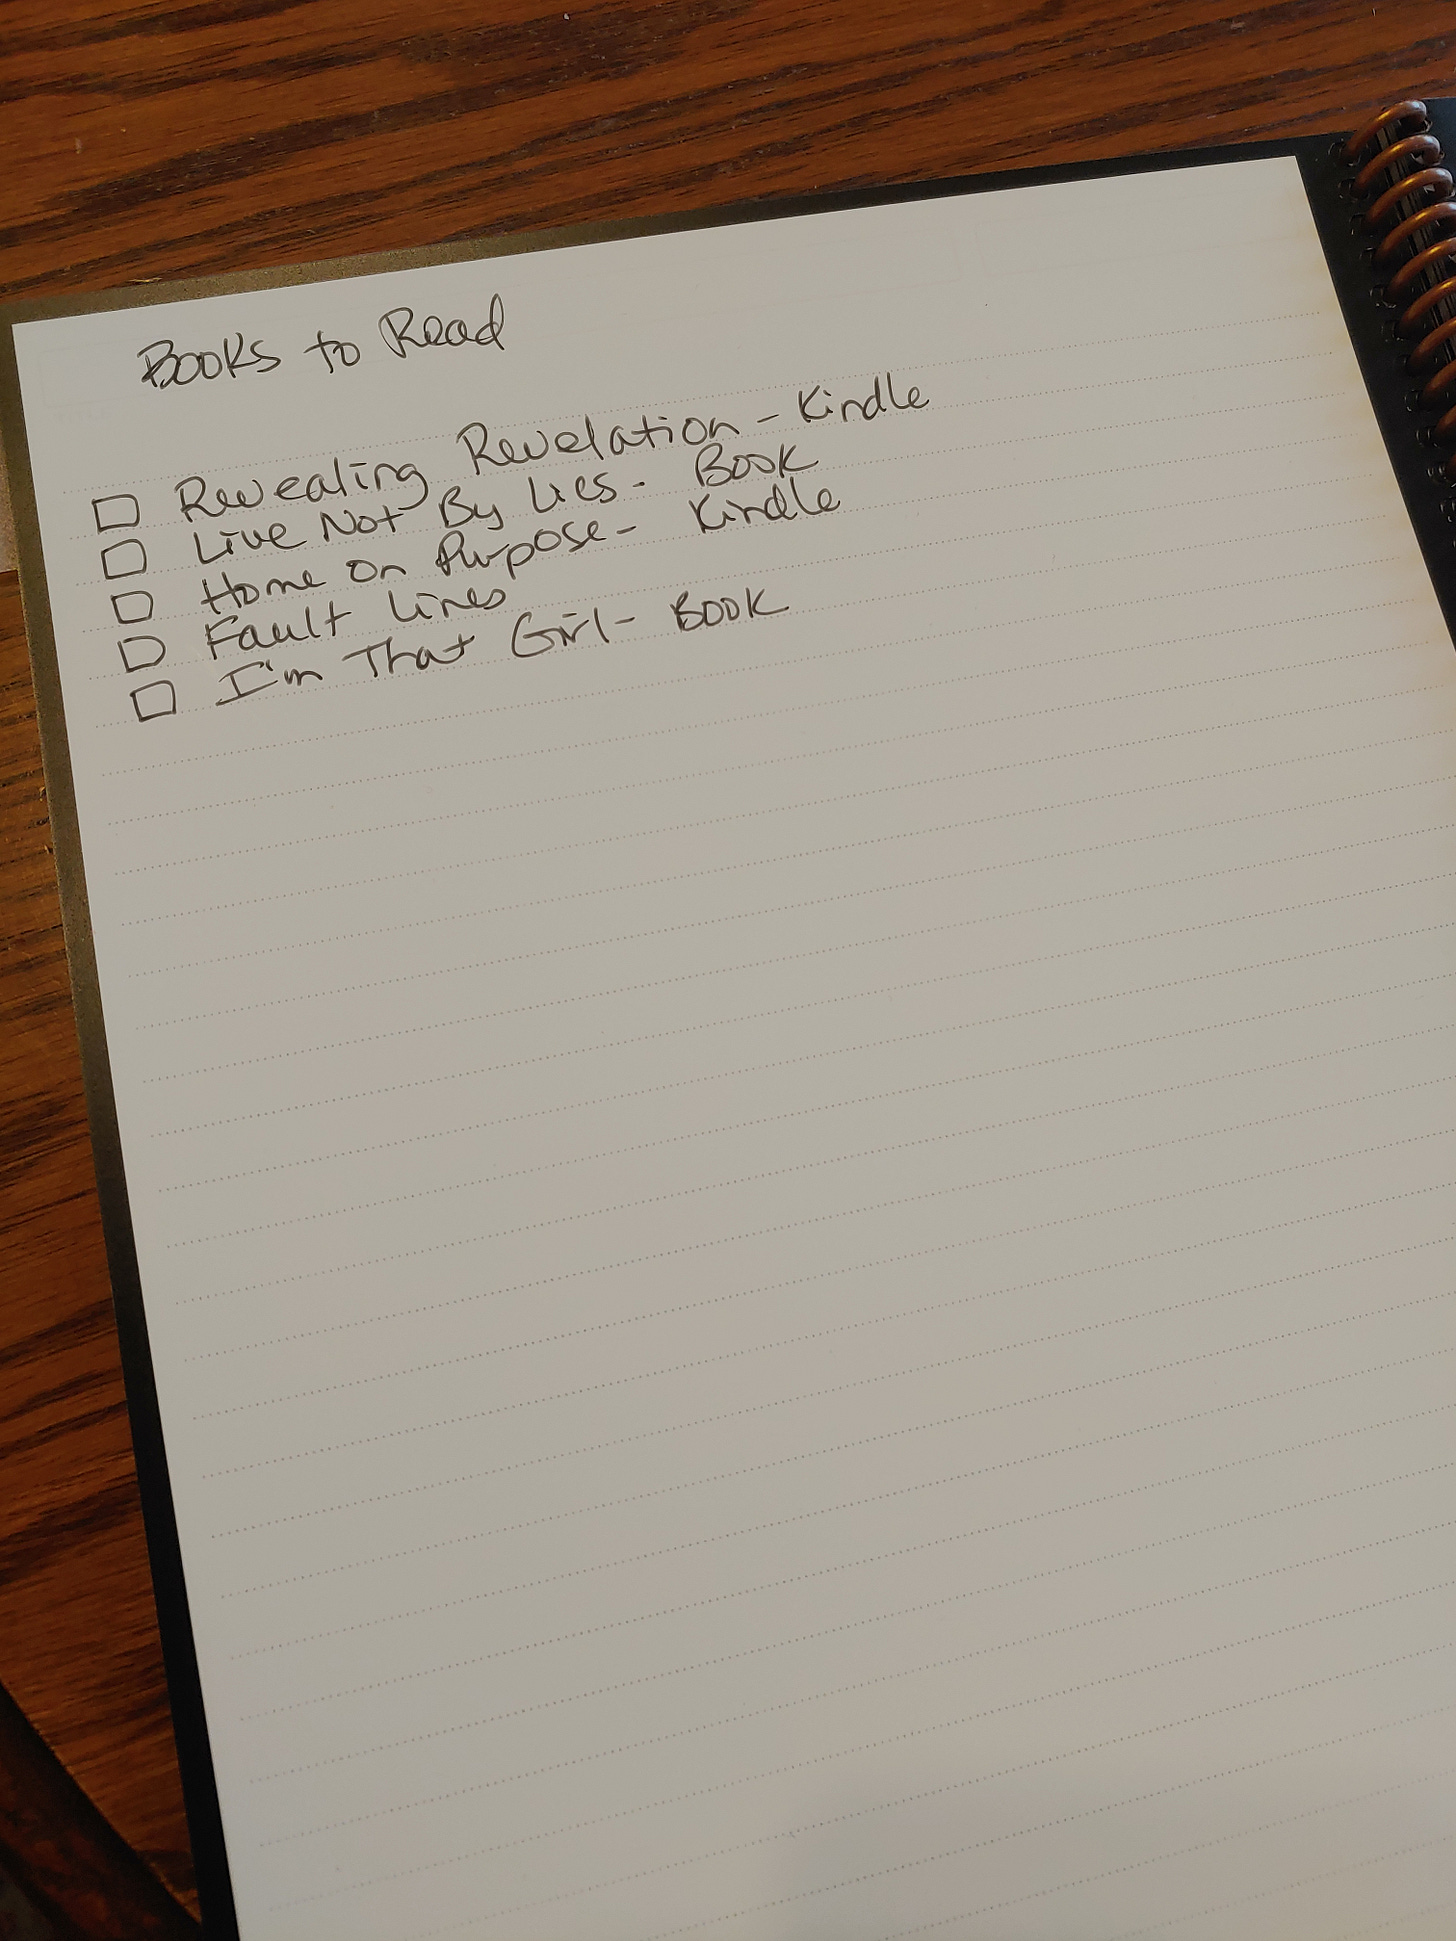 Books to Read
☐ Revealing Revelation - Kindle
☐ Live Not By Lies - Book
☐ Home On Purpose - Kindle
☐ Fault Lines
☐ I'm That Girl - Book